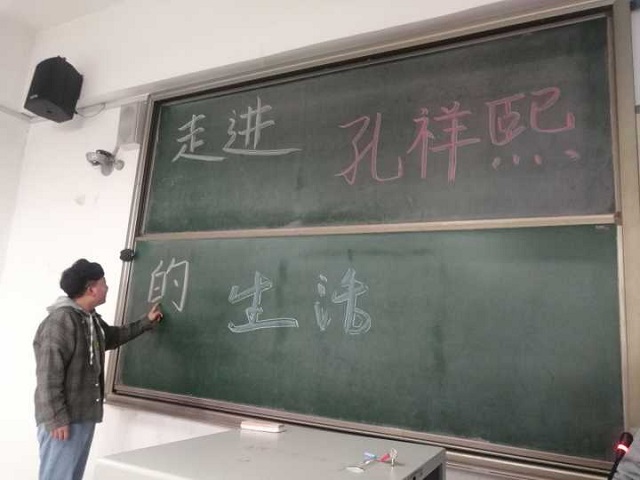 走进 孔祥熙
的生活